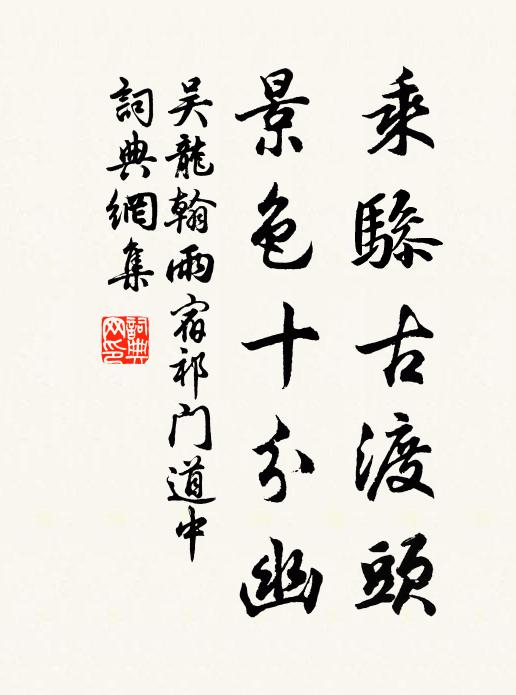 乘驂古渡頭
景色十分幽
吴龍翰雨宿祁门道中
詞典網集
詞典网印